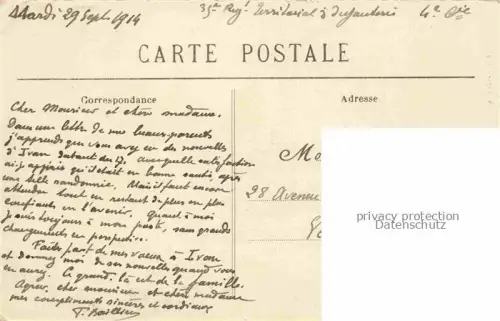 Mardi 29 Sept. 1914
35e Regt Territorial d'Infanterie 4e Cie
CARTE POSTALE
Correspondance
Adresse
Cher Monsieur et chère madame.
Dans une lettre de mes beaux-parents
j'apprends que vous avez eu des nouvelles
d'Ivan datant du 17. Avec quelle satisfaction
ai-je appris qu'il était en bonne santé après
une telle randonnée. Mais il faut encore
attendre tout en restant de plus en plus
confiants en l'avenir. Quant à moi
je suis toujours à mon poste, sans grands
changements en perspective.
Faites part de mes vœux à Ivan
et donnez moi de ses nouvelles quand vous
en aurez. Ici grand, là est de la famille.
Agréez, cher monsieur et chère madame
mes compliments sincères et cordiaux
28 Avenue
privacy protection
Datenschutz